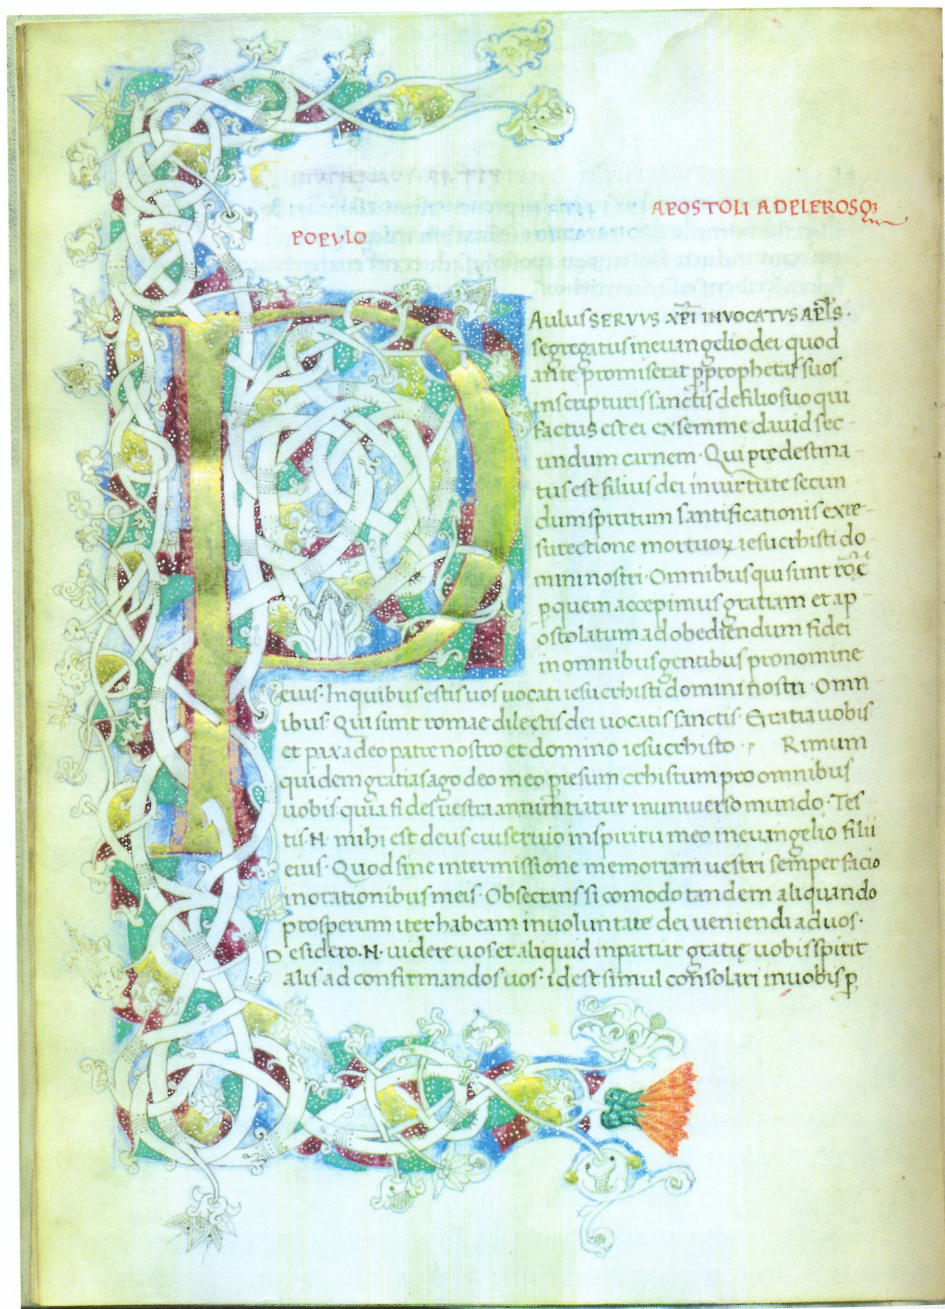 APOSTOLI AD CLEROSQ3
POPVLO
P
Aulus SERVVS XPI INVOCATVS APLS ·
segregatus in euangelio dei quod
ante promiserat p prophetas suos
in scripturis sanctis de filio suo qui
factus est ei ex semine dauid sec
undum carnem · Qui predestina
tus est filius dei in uirtute secun
dum spiritum santificationis exre
surectione mortuoꝝ iesu crhisti do
mini nostri · Omnibus qui sunt rōe
p quem accepimus gratiam et ap
ostolatum ad obediendum fidei
in omnibus gentibus pro nomine
eius · In quibus estis uos uocati iesu crhisti domini nostri · Omn
ibus · Qui sunt romae dilectis dei uocatis sanctis · Gratia uobis
et pax a deo patre nostro et domino iesu crhisto · P Rimum
quidem gratias ago deo meo p iesum crhistum pro omnibus
uobis quia fides uestra annuntiatur in uniuerso mundo · Tes
tis · N · mihi est deus cui seruio in spiritu meo in euangelio filii
eius · Quod sine intermissione memoriam uestri semper facio
in orationibus meis · Obsecrans si comodo tandem aliquando
prosperum iter habeam in uoluntate dei ueniendi ad uos ·
Desidero · N · uidere uos et aliquid inpartiar gratię uobis spirit
alis ad confirmandos uos · id est simul consolari in uobis p